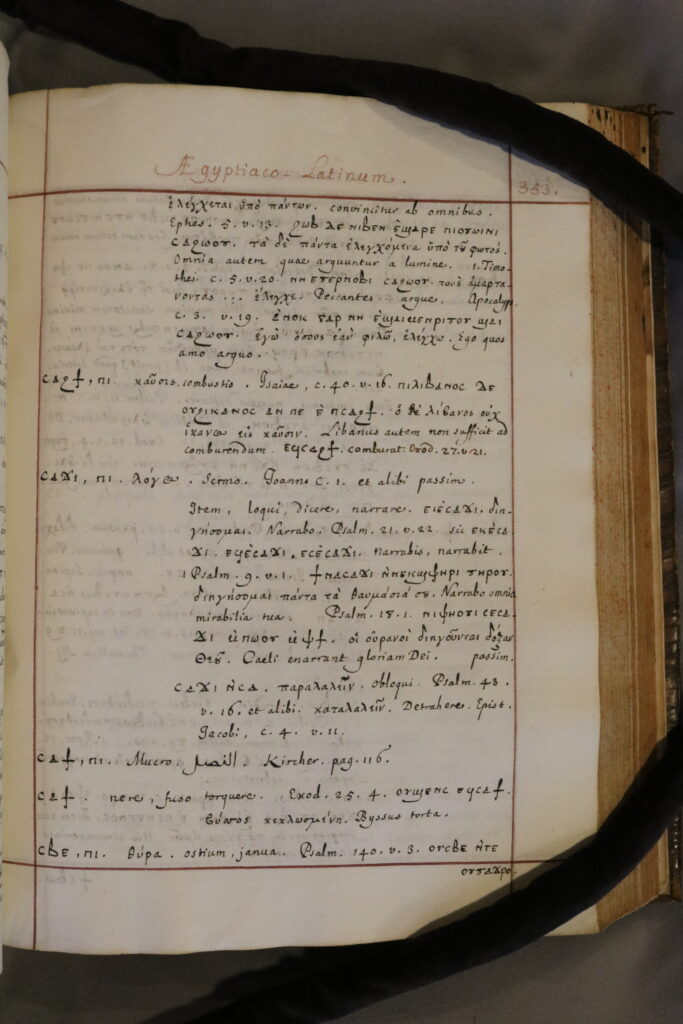 Ægyptiaco-Latinum.
353.
ἐλέγχεται ὑπὸ πάντων. convincitur ab omnibus.
Ephes. 5. v. 13. ϩⲱⲃ ⲇⲉ ⲛⲓⲃⲉⲛ ⲉϣⲁⲣⲉ ⲡⲓⲟⲩⲱⲓⲛⲓ
ⲥⲁϩⲱⲟⲩ. τὰ δὲ πάντα ἐλεγχόμενα ὑπὸ τȣ͂ φωτός.
Omnia autem quae arguuntur a lumine. 1. Timo-
thei c. 5. v. 20. ⲛⲏ ⲉⲧⲉⲣⲛⲟⲃⲓ ⲥⲁϩⲱⲟⲩ. τοὺς ἁμαρτά-
νοντας ... ἔλεγχε. Peccantes argue. Apocalyp.
c. 3. v. 19. ⲁⲛⲟⲕ ⲅⲁⲣ ⲛⲏ ⲉϯⲙⲉⲓ ⲙⲙⲱⲟⲩ ϣⲁⲓ
ⲥⲁϩⲱⲟⲩ. ἐγὼ ὅσους ἐὰν φιλῶ, ἐλέγχω. Ego quos
amo arguo.
ⲥⲁϩϯ, ⲡⲓ. καῦσις. combustio. Isaiae, c. 40. v. 16. ⲡⲓⲗⲓⲃⲁⲛⲟⲥ ⲇⲉ
ⲟⲩϩⲓⲕⲁⲛⲟⲥ ⲁⲛ ⲡⲉ ⲉ ⲡⲥⲁϩϯ. ὁ δὲ λίβανος οὐχ
ἱκανὸς εἰς καῦσιν. Libanus autem non sufficit ad
comburendum ⲉϥⲥⲁϩϯ. comburat. Exod. 27. v. 21.
ⲥⲁϫⲓ, ⲡⲓ. λόγος. Sermo. Joannis C. 1. et alibi passim.
Item, loqui, dicere, narrare. ⲉⲓⲉⲥⲁϫⲓ. διη-
γήσομαι. Narrabo. Psalm. 21. v. 22. sic ⲉⲕⲉⲥⲁ
ϫⲓ. ⲉϥⲉⲥⲁϫⲓ, ⲉⲥⲉⲥⲁϫⲓ. narrabis, narrabit.
Psalm. 9. v. 1. ϯⲛⲁⲥⲁϫⲓ ⲛⲛⲉⲕϣⲫⲏⲣⲓ ⲧⲏⲣⲟⲩ.
διηγήσομαι πάντα τὰ θαυμάσιά σȣ. Narrabo omnia
mirabilia tua. Psalm. 18. 1. ⲛⲓⲫⲏⲟⲩⲓ ⲥⲉⲥⲁ-
ϫⲓ ⲙⲡⲱⲟⲩ ⲙⲫϯ. οἱ οὐρανοὶ διηγοῦνται δόξαν
Θεȣ͂. Caeli enarrant gloriam Dei. passim.
ⲥⲁϫⲓ ⲛⲥⲁ. παραλαλεῖν. obloqui. Psalm. 43.
v. 16. et alibi. καταλαλεῖν. Detrahere. Epist.
Jacobi, c. 4. v. 11.
ⲥⲁϯ, ⲡⲓ. Mucro. Kircher. pag. 116.
ⲥⲁϯ. nere, fuso torquere. Exod. 25. 4. ⲟⲩϣⲉⲛⲥ ⲉϥⲥⲁϯ.
Βύσσος κεκλωσμένη. Byssus torta.
ⲥⲃⲉ, ⲡⲓ. θύρα. ostium, janua. Psalm. 140. v. 3. ⲟⲩⲥⲃⲉ ⲛⲧⲉ
ⲟⲩⲧⲁϫⲣⲟ.